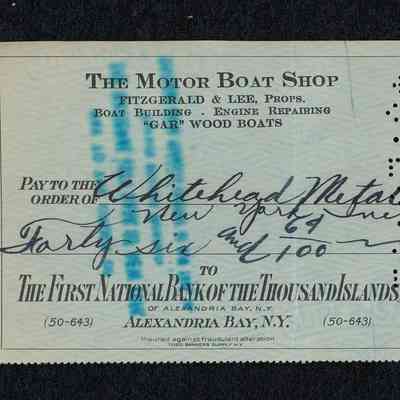 THE MOTOR BOAT SHOP
FITZGERALD & LEE, PROPS.
BOAT BUILDING . ENGINE REPAIRING
"GAR" WOOD BOATS
PAY TO THE
ORDER OF Whitehead Metal
New York
Forty six and 64/100
TO
THE FIRST NATIONAL BANK OF THE THOUSAND ISLANDS
OF ALEXANDRIA BAY, N.Y.
(50-643) ALEXANDRIA BAY, N.Y. (50-643)
Insured against fraudulent alteration
TODD BANKERS SUPPLY N.Y.